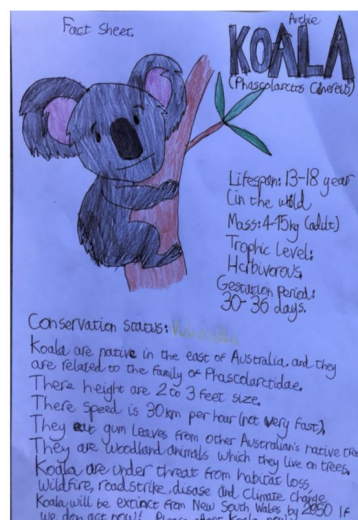 Fact Sheet.
Archie
KOALA
(Phascolarctos Cinereus)
Lifespan: 13-18 year
(in the wild
Mass: 4-15kg (adult)
Trophic Level:
Herbivorous
Gestation Period:
30-36 days.
Conservation Status: Vulnerable
Koala are native in the east of Australia. and they
are related to the family of Phascolarctidae.
There height are 2 to 3 feet size.
There speed is 30km per hour (not very fast).
They eat gum leaves from other Australian's native tree
They are woodland animals which they live on trees.
Koala are under threat from habitat loss,
wildfire, road strike, disase and climate change
Koala will be extinct from New South Wales by 2050 If
we don act now!